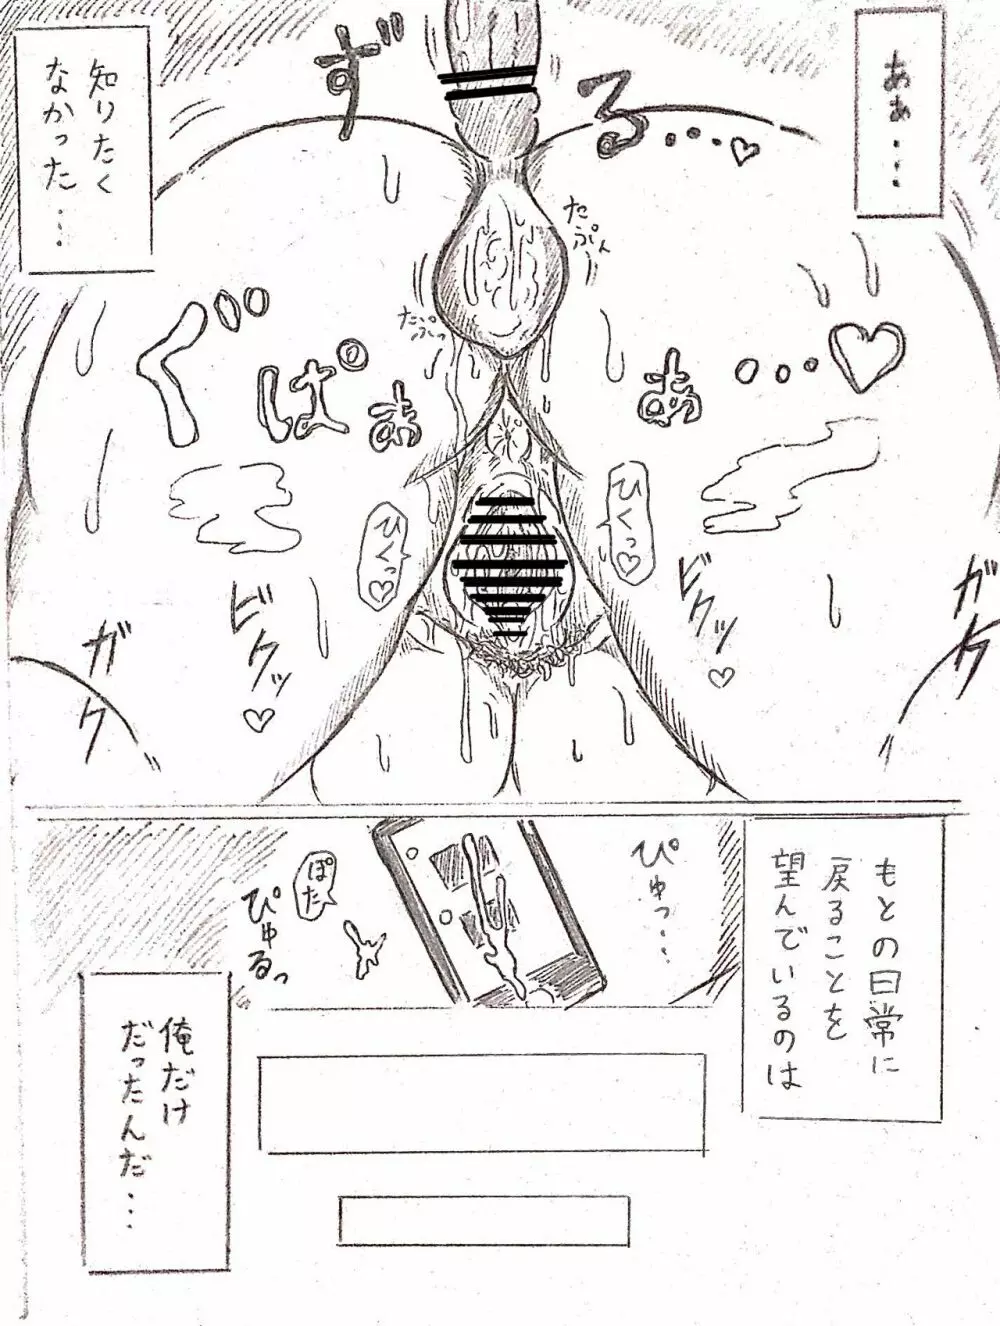 あぁ…
ず゛
る…♡
知りたく
なかった…
たぷん
たぷっ
ぐ゛ぱぁ
あ…♡
ひくっ♡
ひくっ♡
ビクッ♡
ビクッ♡
ガク
ガク
もとの日常に
戻ることを
望んでいるのは
ぴゅっ…
ぽた
ぴゅるっ
俺だけ
だったんだ…